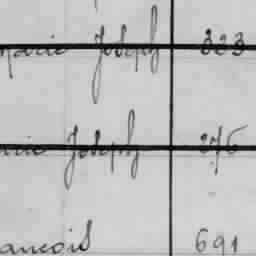 marie Joseph 323
marie Joseph 276
ancois 691